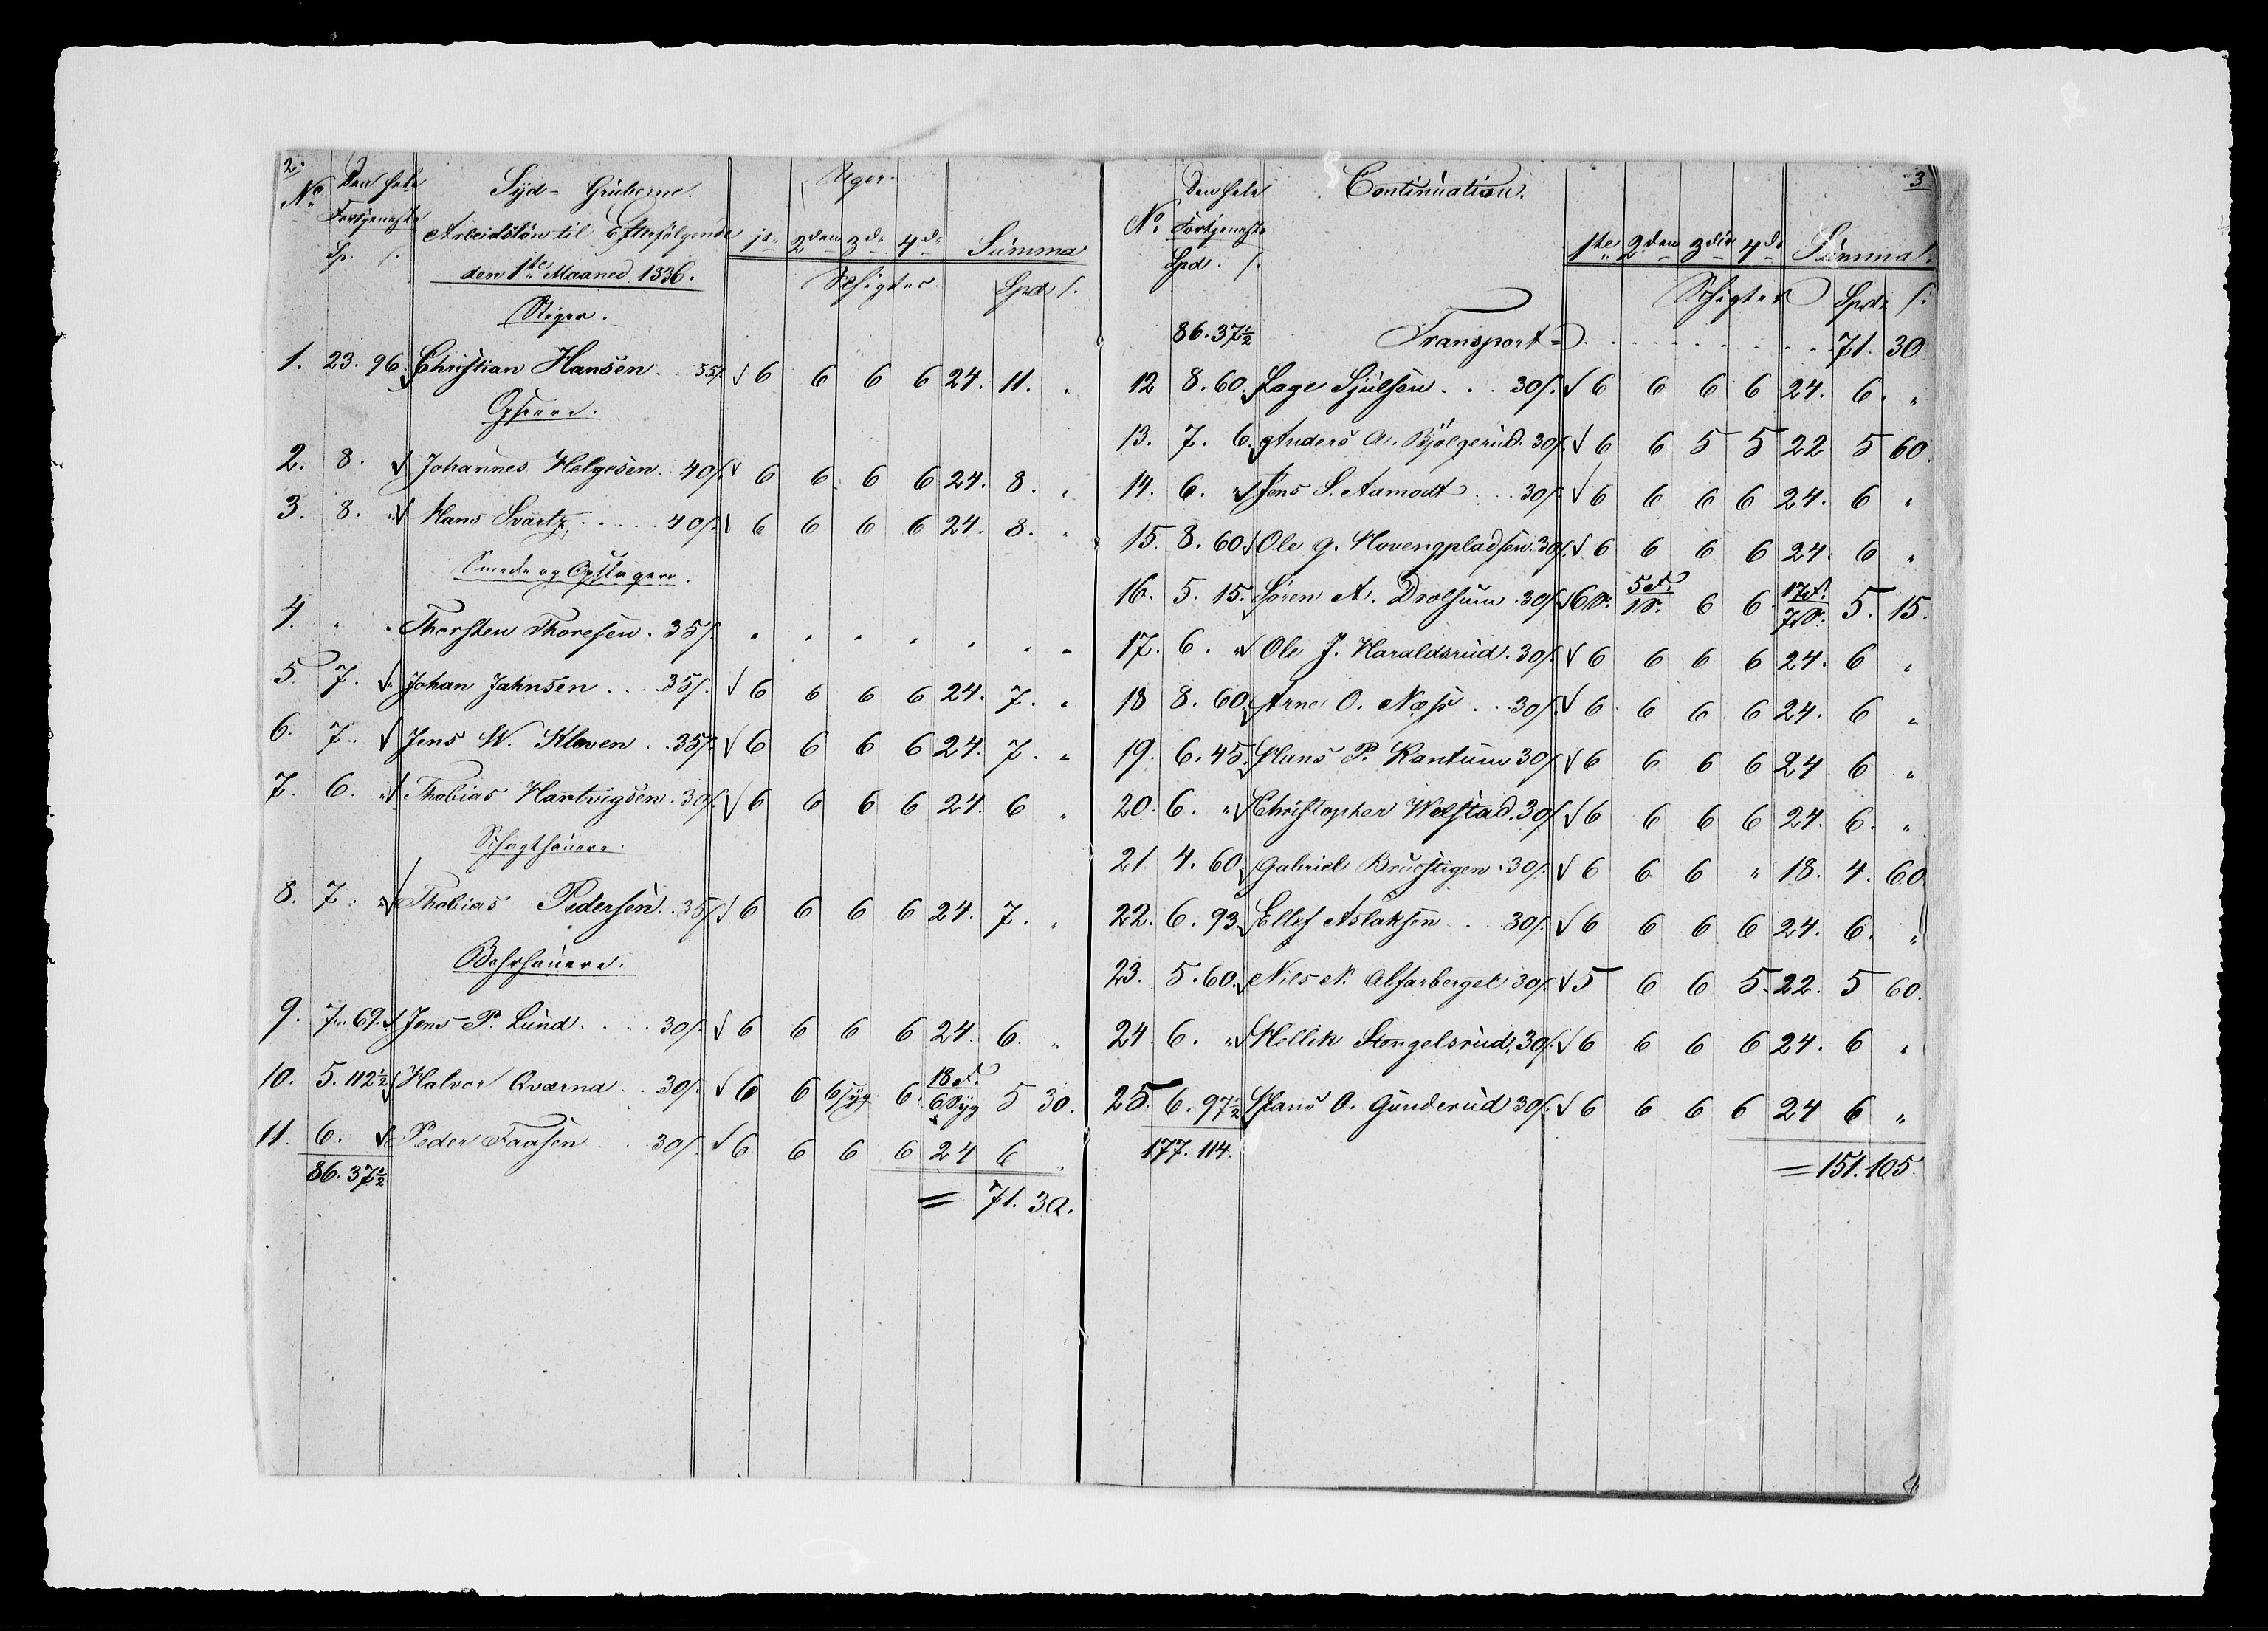 2.
No Den hele Fortjeneste Sp. s. Syd-Gruberne. Uger.
Arbeidslön til Efterfölgende 1ste 2den 3die 4de Summa
den 1ste Maaned 1836. Schigter Spd s.
Stiger.
1. 23. 96. Christian Hansen. 55s. √ 6 6 6 6 24. 11. "
2. 8. " √ Johannes Helgesen. 40s. √ 6 6 6 6 24. 8. "
3. 8. " √ Hans Svartz ..... 40s. √ 6 6 6 6 24. 8. "
Smede og Opslagere.
4. " " Thorsten Thoresen. 35s. " " " " " " "
5. 7. √ Johan Jahnsen .... 35s. √ 6 6 6 6 24. 7. "
6. 7. √ Jens W. Kleven .. 35s. √ 6 6 6 6 24. 7. "
7. 6. " √ Thobias Hantvigsen. 30s. √ 6 6 6 6 24. 6 "
8. 7. " √ Thobias Pedersen. 35s. √ 6 6 6 6 24. 7. "
Bohrhauere.
9. 7. 69. √ Jens P. Lund .... 30s. √ 6 6 6 6 24. 6. "
10. 5. 112½ √ Halvor Qværna .. 30s. √ 6 6 6 syg 6. 18 A. 6 Syg 5 30.
11. 6. √ Peder Faasen .. 30s. √ 6 6 6 6 24 6 "
86. 37½ = 71. 30.
3
No Den hele Fortjeneste Spd. s. Continuation.
1ste 2den 3die 4de Summa.
Schigter Spd. s.
86. 37½ Transport = . . . . . . . . 71. 30
12 8. 60. √ Lage Sjulsen ... 30s. √ 6 6 6 6 24. 6. "
13. 7. 6. √ Anders A. Bjølgerud. 30s. √ 6 6 5 5 22 5 60.
14. 6. " √ Jens S. Aamodt ... 30s. √ 6 6 6 6 24. 6 "
15. 8. 60 √ Ole G. Hovengpladsen. 30s. √ 6 6 6 6 24. 6 "
16. 5. 15. √ Søren A. Drolsum. 30s. √ 6 P. 5 A. 1 P. 6 6. 17 A. 7 P. 5. 15.
17. 6. " √ Ole J. Haraldsrud. 30s. √ 6 6 6 6 24. 6 "
18 8. 60. √ Arne O. Næss .. 30s. √ 6 6 6 6 24. 6 "
19. 6. 45. √ Hans P. Rantum 30s. √ 6 6 6 6 24 6 "
20. 6. " √ Christopher Welstad. 30s. √ 6 6 6 6 24. 6. "
21 4. 60. √ Gabriel Bruestigen. 30s. √ 6 6 6 " 18. 4. 60.
22. 6. 93. √ Ellef Aslaksen ... 30s. √ 6 6 6 6 24. 6. "
23. 5. 60. √ Nils N. 30s. √ 5 6 6 5. 22. 5 60.
24. 6. " √ Hellik Stengelsrud, 30s. √ 6 6 6 6 24. 6 "
25. 6. 97½ √ Hans O. Gunderud 30s. √ 6 6 6 6 24 6 "
177. 114. = 151. 105.